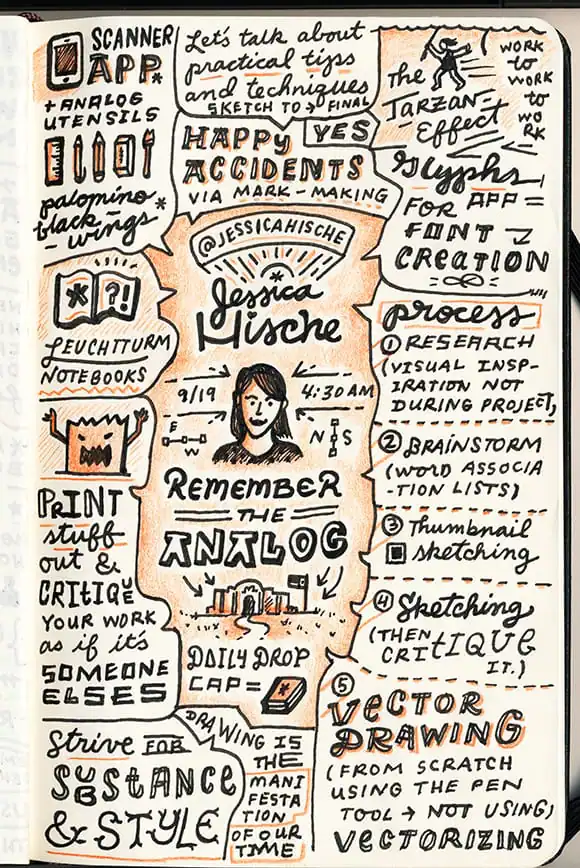 SCANNER
APP*
+ ANALOG
UTENSILS
palomino*
black-
-wings
*?!
LEUCHTTURM
NOTEBOOKS
PRINT
stuff
out &
CRITIQUE
YOUR WORK
as if it's
SOMEONE
ELSES
Strive FOR
SUBSTANCE
& STYLE
Let's talk about
practical tips
and techniques
SKETCH TO → FINAL
HAPPY YES
ACCIDENTS
VIA MARK-MAKING
@JESSICAHISCHE
*
Jessica
Hische
9/19 4:30AM
E
W
N S
REMEMBER
THE
ANALOG
DAILY DROP
CAP = *
DRAWING IS
THE
MANI
FESTA
TION
OF OUR
TIME
The
TARZAN-
EFFECT
WORK
to
WORK
to
WO
RK
Glyphs
FOR APP =
FONT
CREATION
process
① RESEARCH
(VISUAL INSP-
IRATION NOT
DURING PROJECT)
② BRAINSTORM
(WORD ASSOCIA
-TION LISTS)
③ Thumbnail
sketching
④ Sketching
(THEN
CRITIQUE
IT.)
⑤
VECTOR
DRAWING
(FROM SCRATCH
USING THE PEN
TOOL → NOT USING)
VECTORIZING